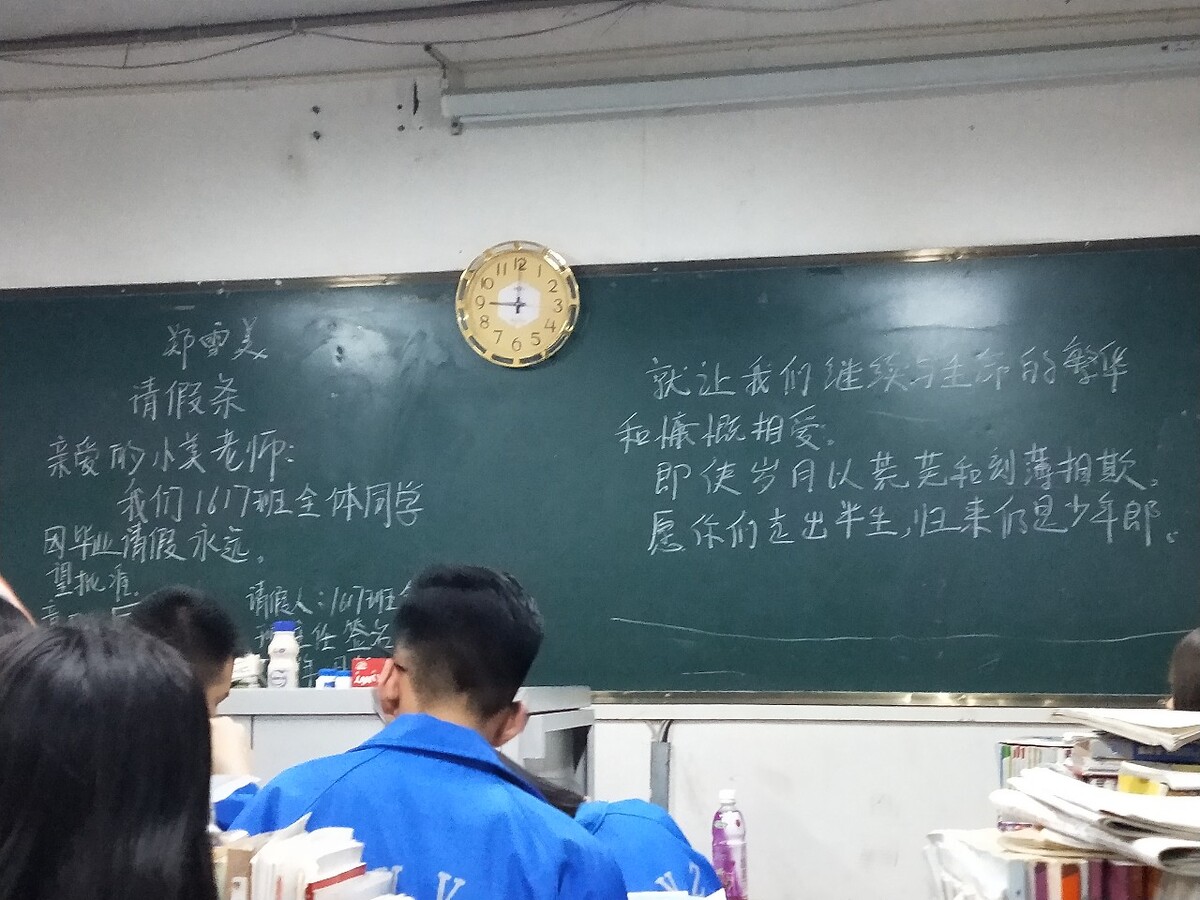 郑雪美
请假条
亲爱的小美老师:
我们1617班全体同学
因毕业请假永远。
望批准.
请假人:1617班
签名
就让我们继续与生命的繁华
和慷慨相爱。
即使岁月以荒芜和刻薄相欺。
愿你们走出半生,归来仍是少年郎。
11 12 1
10 2
9 3
8 4
7 6 5